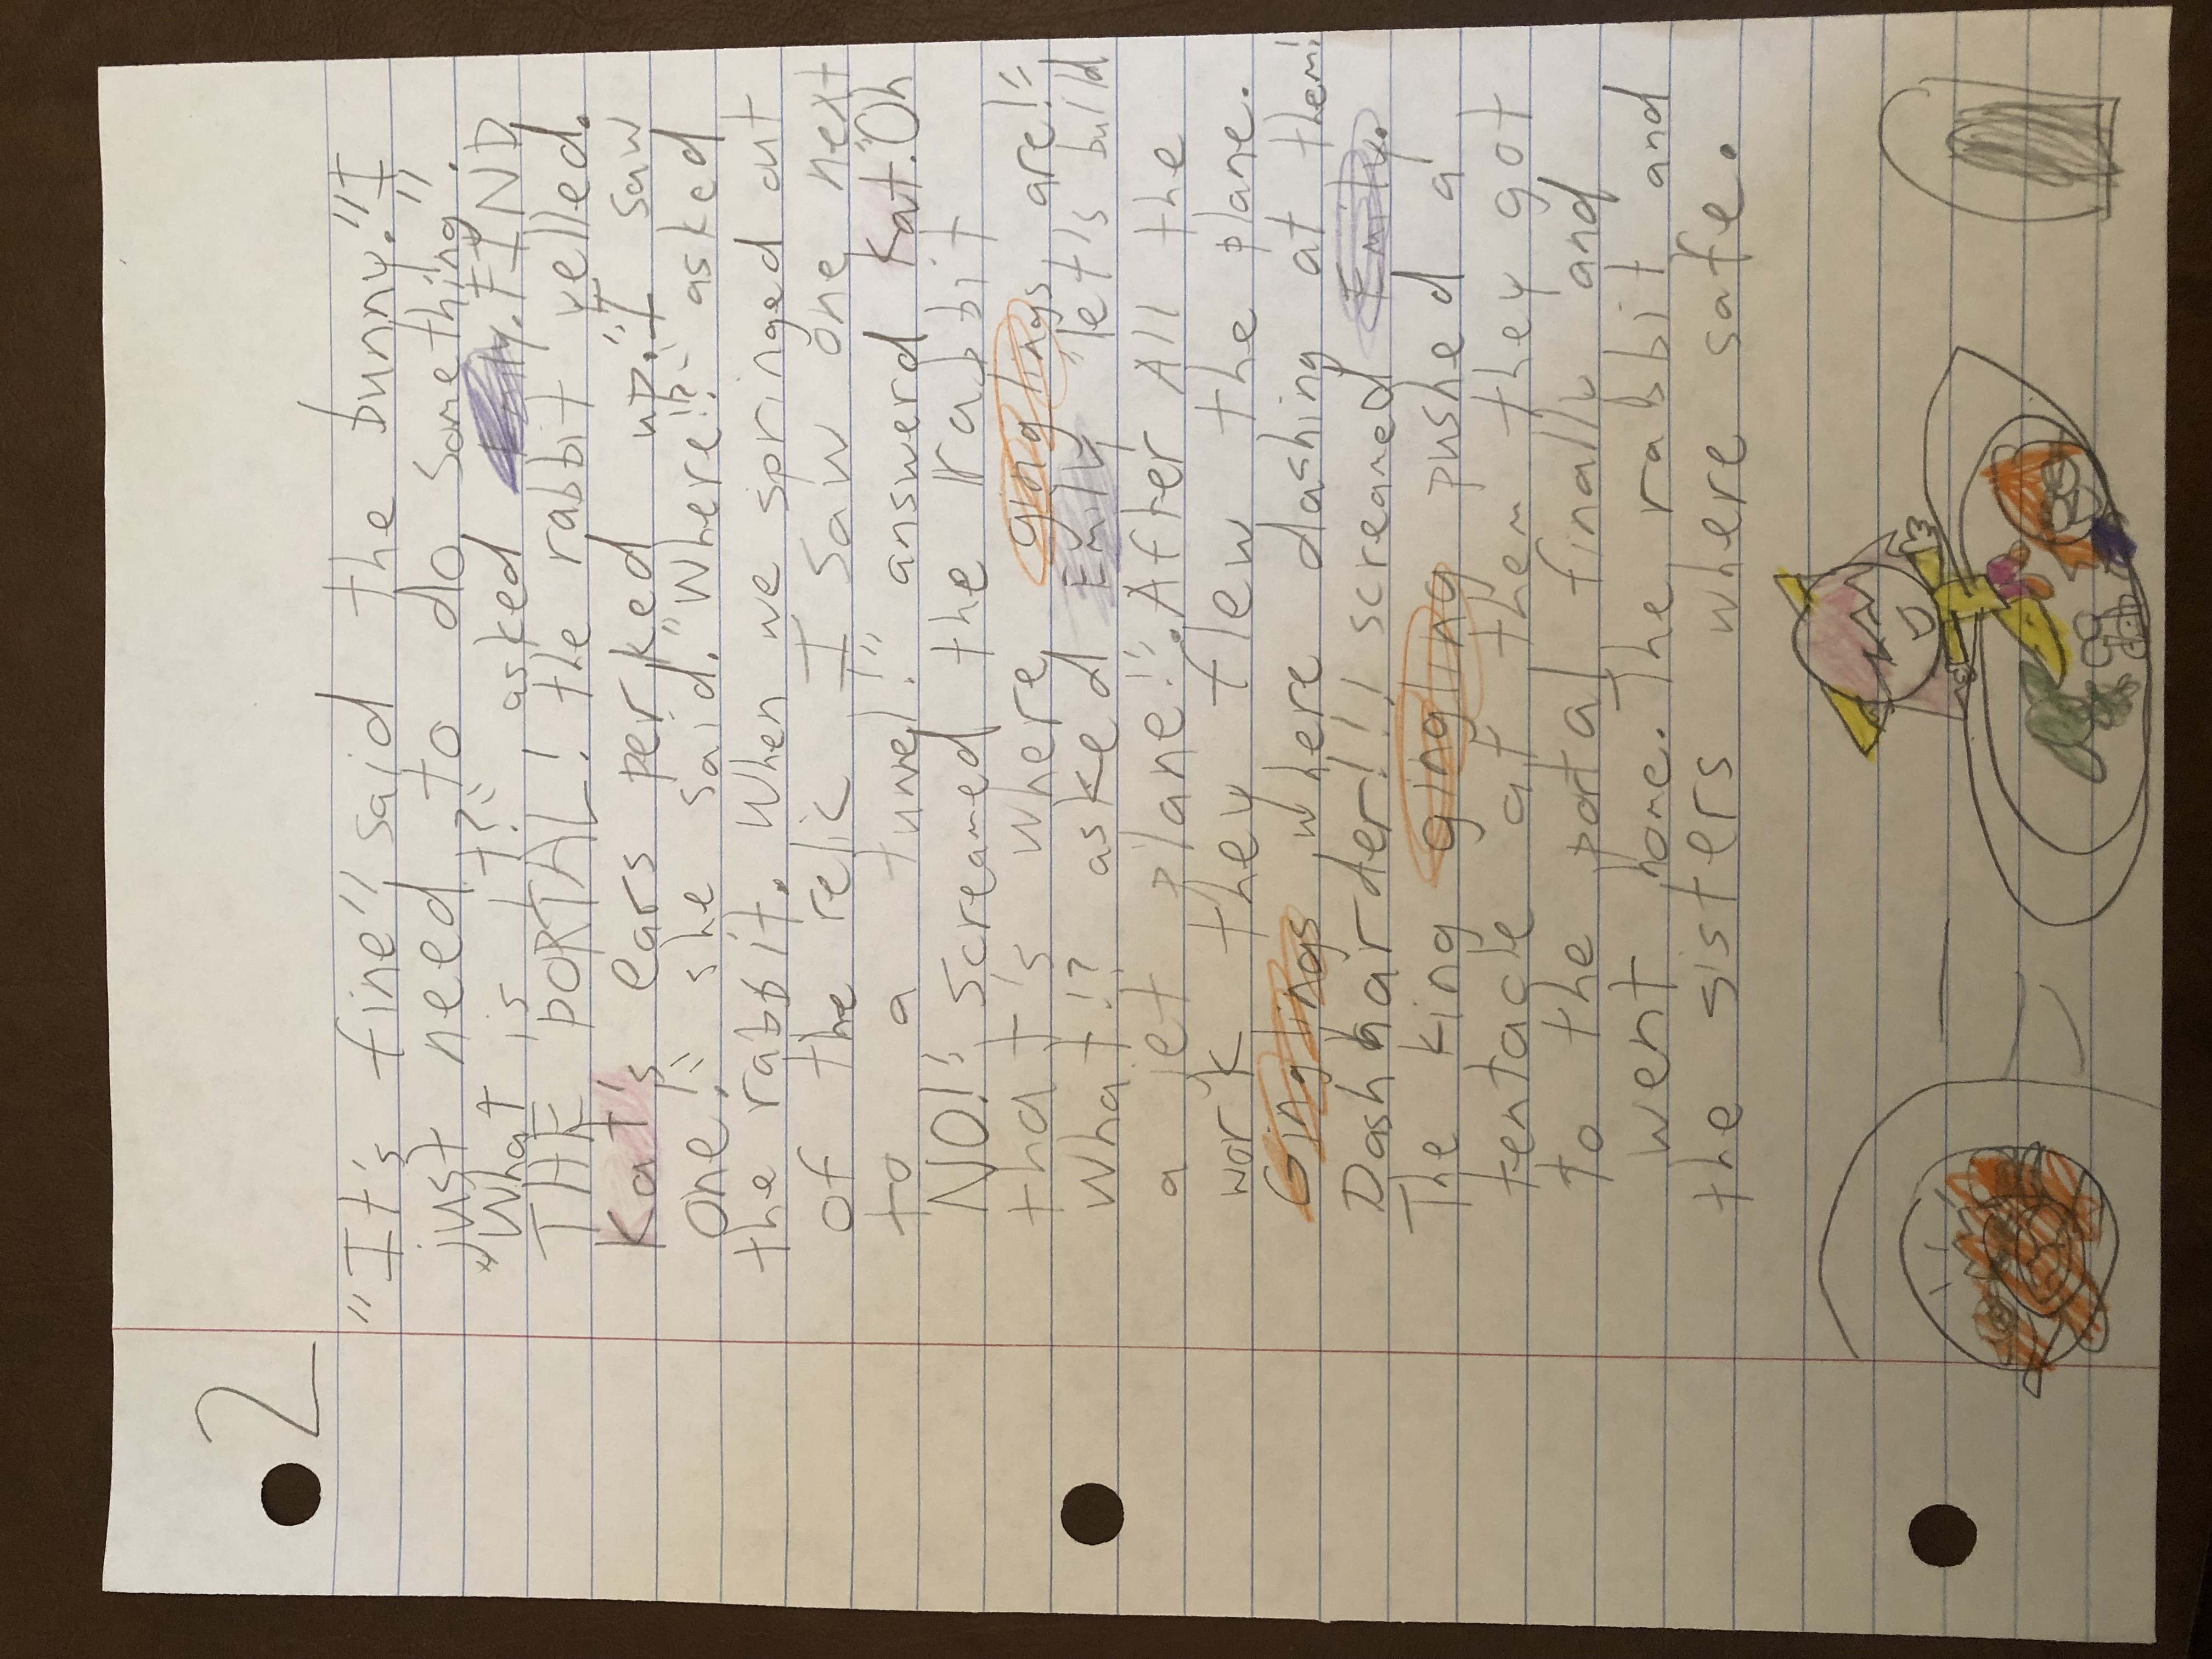 2
"It's fine", said the bunny. "I
just need to do something".
"What is it?", asked Emily. FIND
THE PORTAL! the rabbit yelled.
Kat's ears perked up. "I saw
one!" she said. "Where!?" asked
the rabbit. When we springed out
of the relic I saw one next
to a tunnel!" answerd Kat. "Oh
NO!" screamed the rabbit
that's where ginglings are!"
What!? asked Emily, "let's build
a jet plane!". After All the
work they flew the plane.
Ginglings where dashing at them!
Dash harder!!! screamed Emily.
The king gingling pushed a
tentacle at them they got
to the portal finally and
went home. The rabbit and
the sisters where safe.